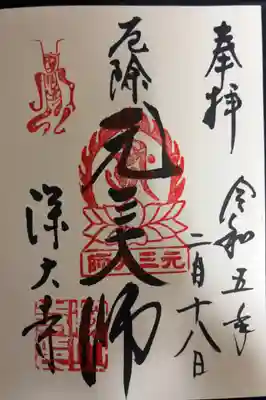 奉拝
令和五年
二月十八日
厄除
元三大師
元三大師
深大寺